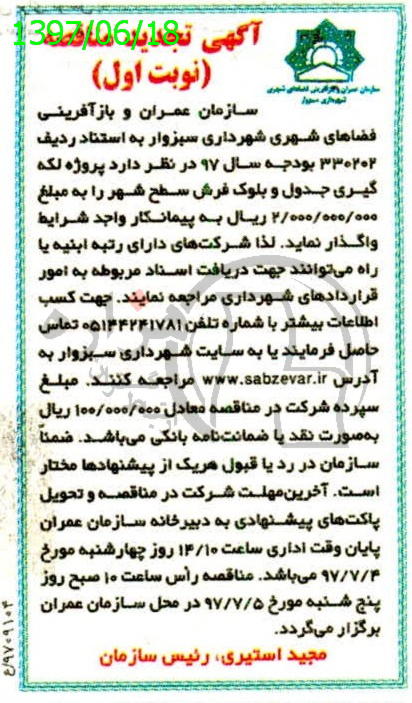 1397/06/18
آگهی تجدید مناقصه
(نوبت اول)
سازمان عمران و بازآفرینی فضاهای شهری
شهرداری سبزوار
سازمان عمران و بازآفرینی
فضاهای شهری شهرداری سبزوار به استناد ردیف
۳۳۰۲۰۲ بودجه سال ۹۷ در نظر دارد پروژه لکه
گیری جدول و بلوک فرش سطح شهر را به مبلغ
۲/۰۰۰/۰۰۰/۰۰۰ ریال به پیمانکار واجد شرایط
واگذار نماید. لذا شرکت‌های دارای رتبه ابنیه یا
راه می‌توانند جهت دریافت اسناد مربوطه به امور
قراردادهای شهرداری مراجعه نمایند. جهت کسب
اطلاعات بیشتر با شماره تلفن ۰۵۱۴۴۲۴۱۷۸۱ تماس
حاصل فرمایند یا به سایت شهرداری سبزوار به
آدرس www.sabzevar.ir مراجعه کنند. مبلغ
سپرده شرکت در مناقصه معادل ۱۰۰/۰۰۰/۰۰۰ ریال
به‌صورت نقد یا ضمانت‌نامه بانکی می‌باشد. ضمناً
سازمان در رد یا قبول هریک از پیشنهادها مختار
است. آخرین‌مهلت شرکت در مناقصه و تحویل
پاکت‌های پیشنهادی به دبیرخانه سازمان عمران
پایان وقت اداری ساعت ۱۴/۱۰ روز چهارشنبه مورخ
۹۷/۷/۴ می‌باشد. مناقصه رأس ساعت ۱۰ صبح روز
پنج شنبه مورخ ۹۷/۷/۵ در محل سازمان عمران
برگزار می‌گردد.
مجید استیری، رئیس سازمان
۹۷۰۹۱۰۴/ع